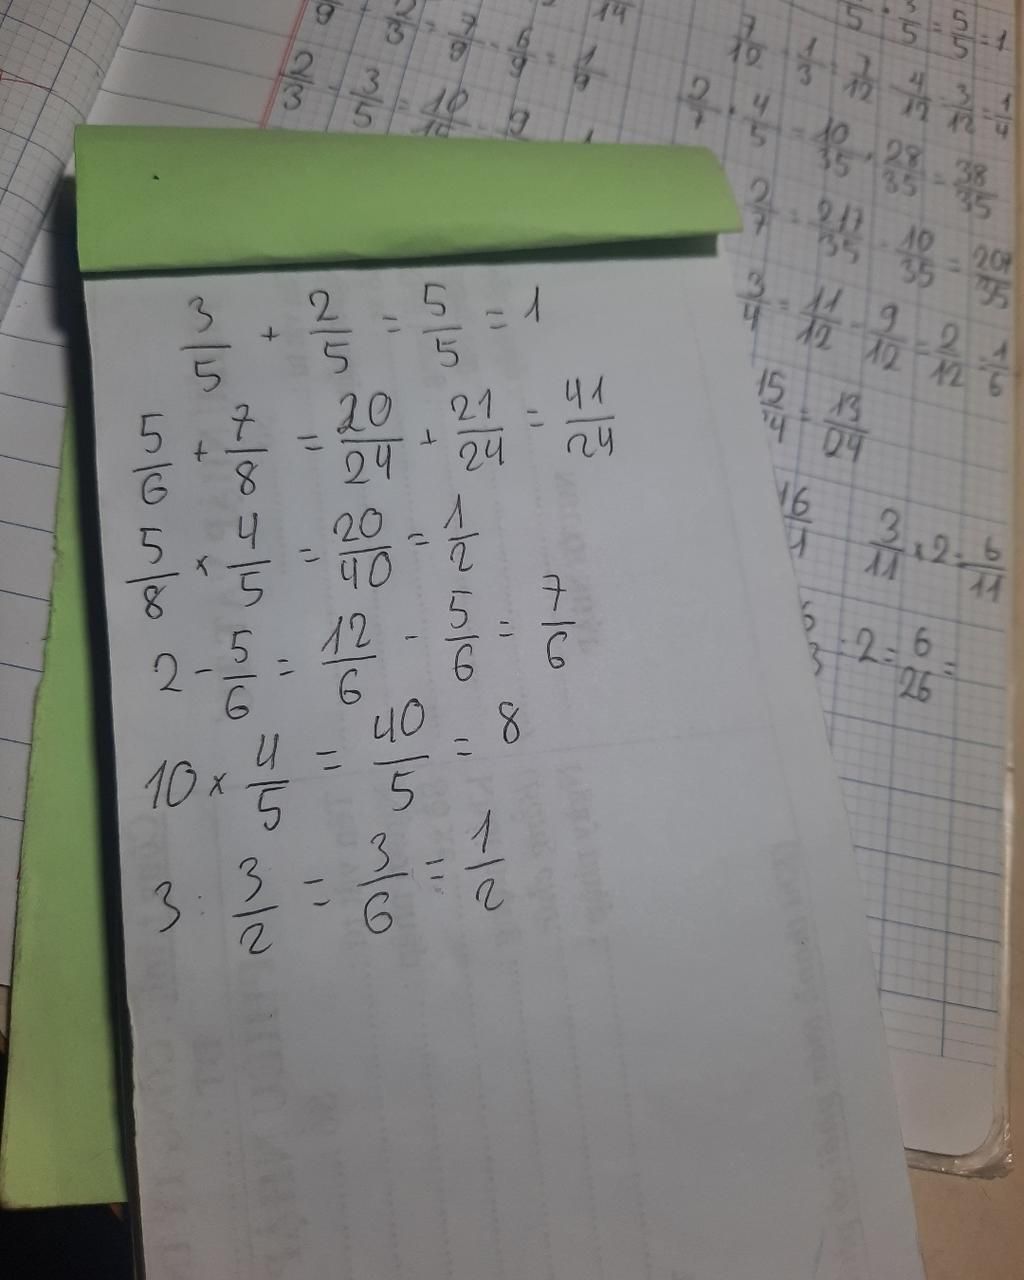 3/5 + 2/5 = 5/5 = 1
5/6 + 7/8 = 20/24 + 21/24 = 41/24
5/8 × 4/5 = 20/40 = 1/2
2 - 5/6 = 12/6 - 5/6 = 7/6
10 × 4/5 = 40/5 = 8
3 : 3/2 = 3/6 = 1/2
/9 - 2/3 = 7/9 - 6/9 = 1/9
2/3 - 3/5 = 10/ - 9
14
/5 + 3/5 = 5/5 = 1
7/10 - 1/3 = 7/12 - 4/12 = 3/12 = 1/4
2/7 + 4/5 = 10/35 + 28/35 = 38/35
2/7 = 217/35 - 10/35 = 207/35
3/4 = 11/12 - 9/12 = 2/12 = 1/6
15/24 = 13/24
16/1
3/11 × 2 = 6/11
: 2 = 6/26 =